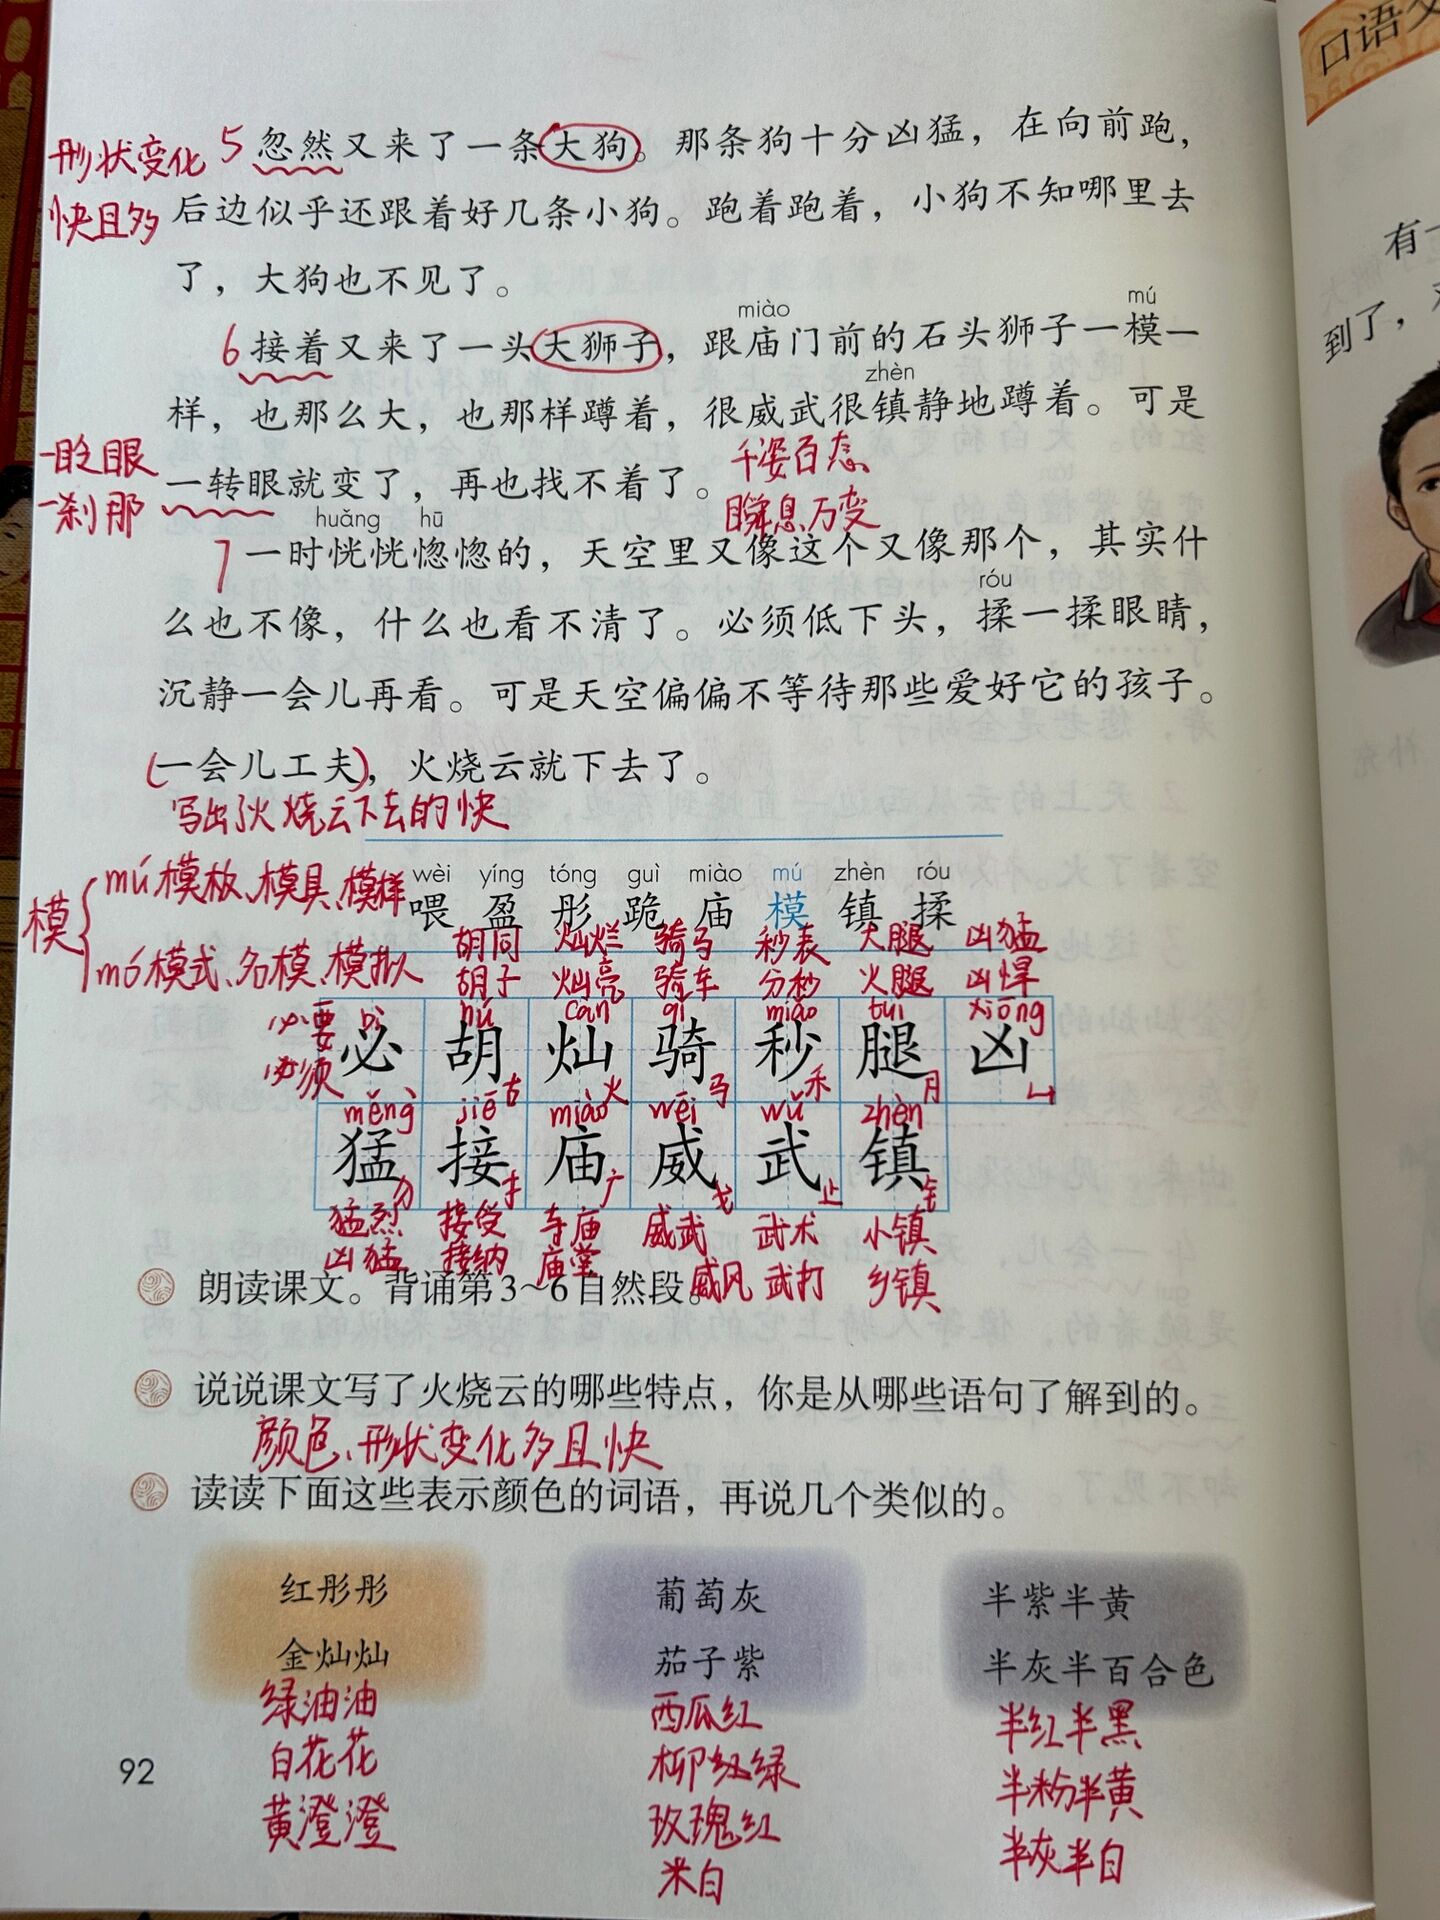 口语交
形状变化 5 忽然又来了一条大狗。那条狗十分凶猛，在向前跑，
快且多 后边似乎还跟着好几条小狗。跑着跑着，小狗不知哪里去
了，大狗也不见了。
miào mú
6 接着又来了一头大狮子，跟庙门前的石头狮子一模一
zhèn
样，也那么大，也那样蹲着，很威武很镇静地蹲着。可是
一眨眼 千姿百态
一转眼就变了，再也找不着了。
一刹那 瞬息万变
huǎng hū
7 一时恍恍惚惚的，天空里又像这个又像那个，其实什
róu
么也不像，什么也看不清了。必须低下头，揉一揉眼睛，
沉静一会儿再看。可是天空偏偏不等待那些爱好它的孩子。
(一会儿工夫)，火烧云就下去了。
写出了火烧云下去的快
wèi yíng tóng guì miào mú zhèn róu
喂 盈 彤 跪 庙 模 镇 揉
模
mú 模板、模具、模样
mó 模式、名模、模拟
胡同 灿烂 骑马 秒表 大腿 凶猛
胡子 灿亮 骑车 分秒 火腿 凶悍
必要 bì hú càn qí miǎo tuǐ xiōng
必须 必 胡 灿 骑 秒 腿 凶
丶 古 火 马 禾 月 凵
měng jiē miào wēi wǔ zhèn
猛 接 庙 威 武 镇
犭 扌 广 戈 止 钅
猛烈 接受 寺庙 威武 武术 小镇
凶猛 接纳 庙堂 威风 武打 乡镇
朗读课文。背诵第3～6自然段。
说说课文写了火烧云的哪些特点，你是从哪些语句了解到的。
颜色、形状变化多且快
读读下面这些表示颜色的词语，再说几个类似的。
红彤彤 葡萄灰 半紫半黄
金灿灿 茄子紫 半灰半百合色
绿油油 西瓜红 半红半黑
白花花 柳绿 半粉半黄
黄澄澄 玫瑰红 半灰半白
米白
92
有一
到了，